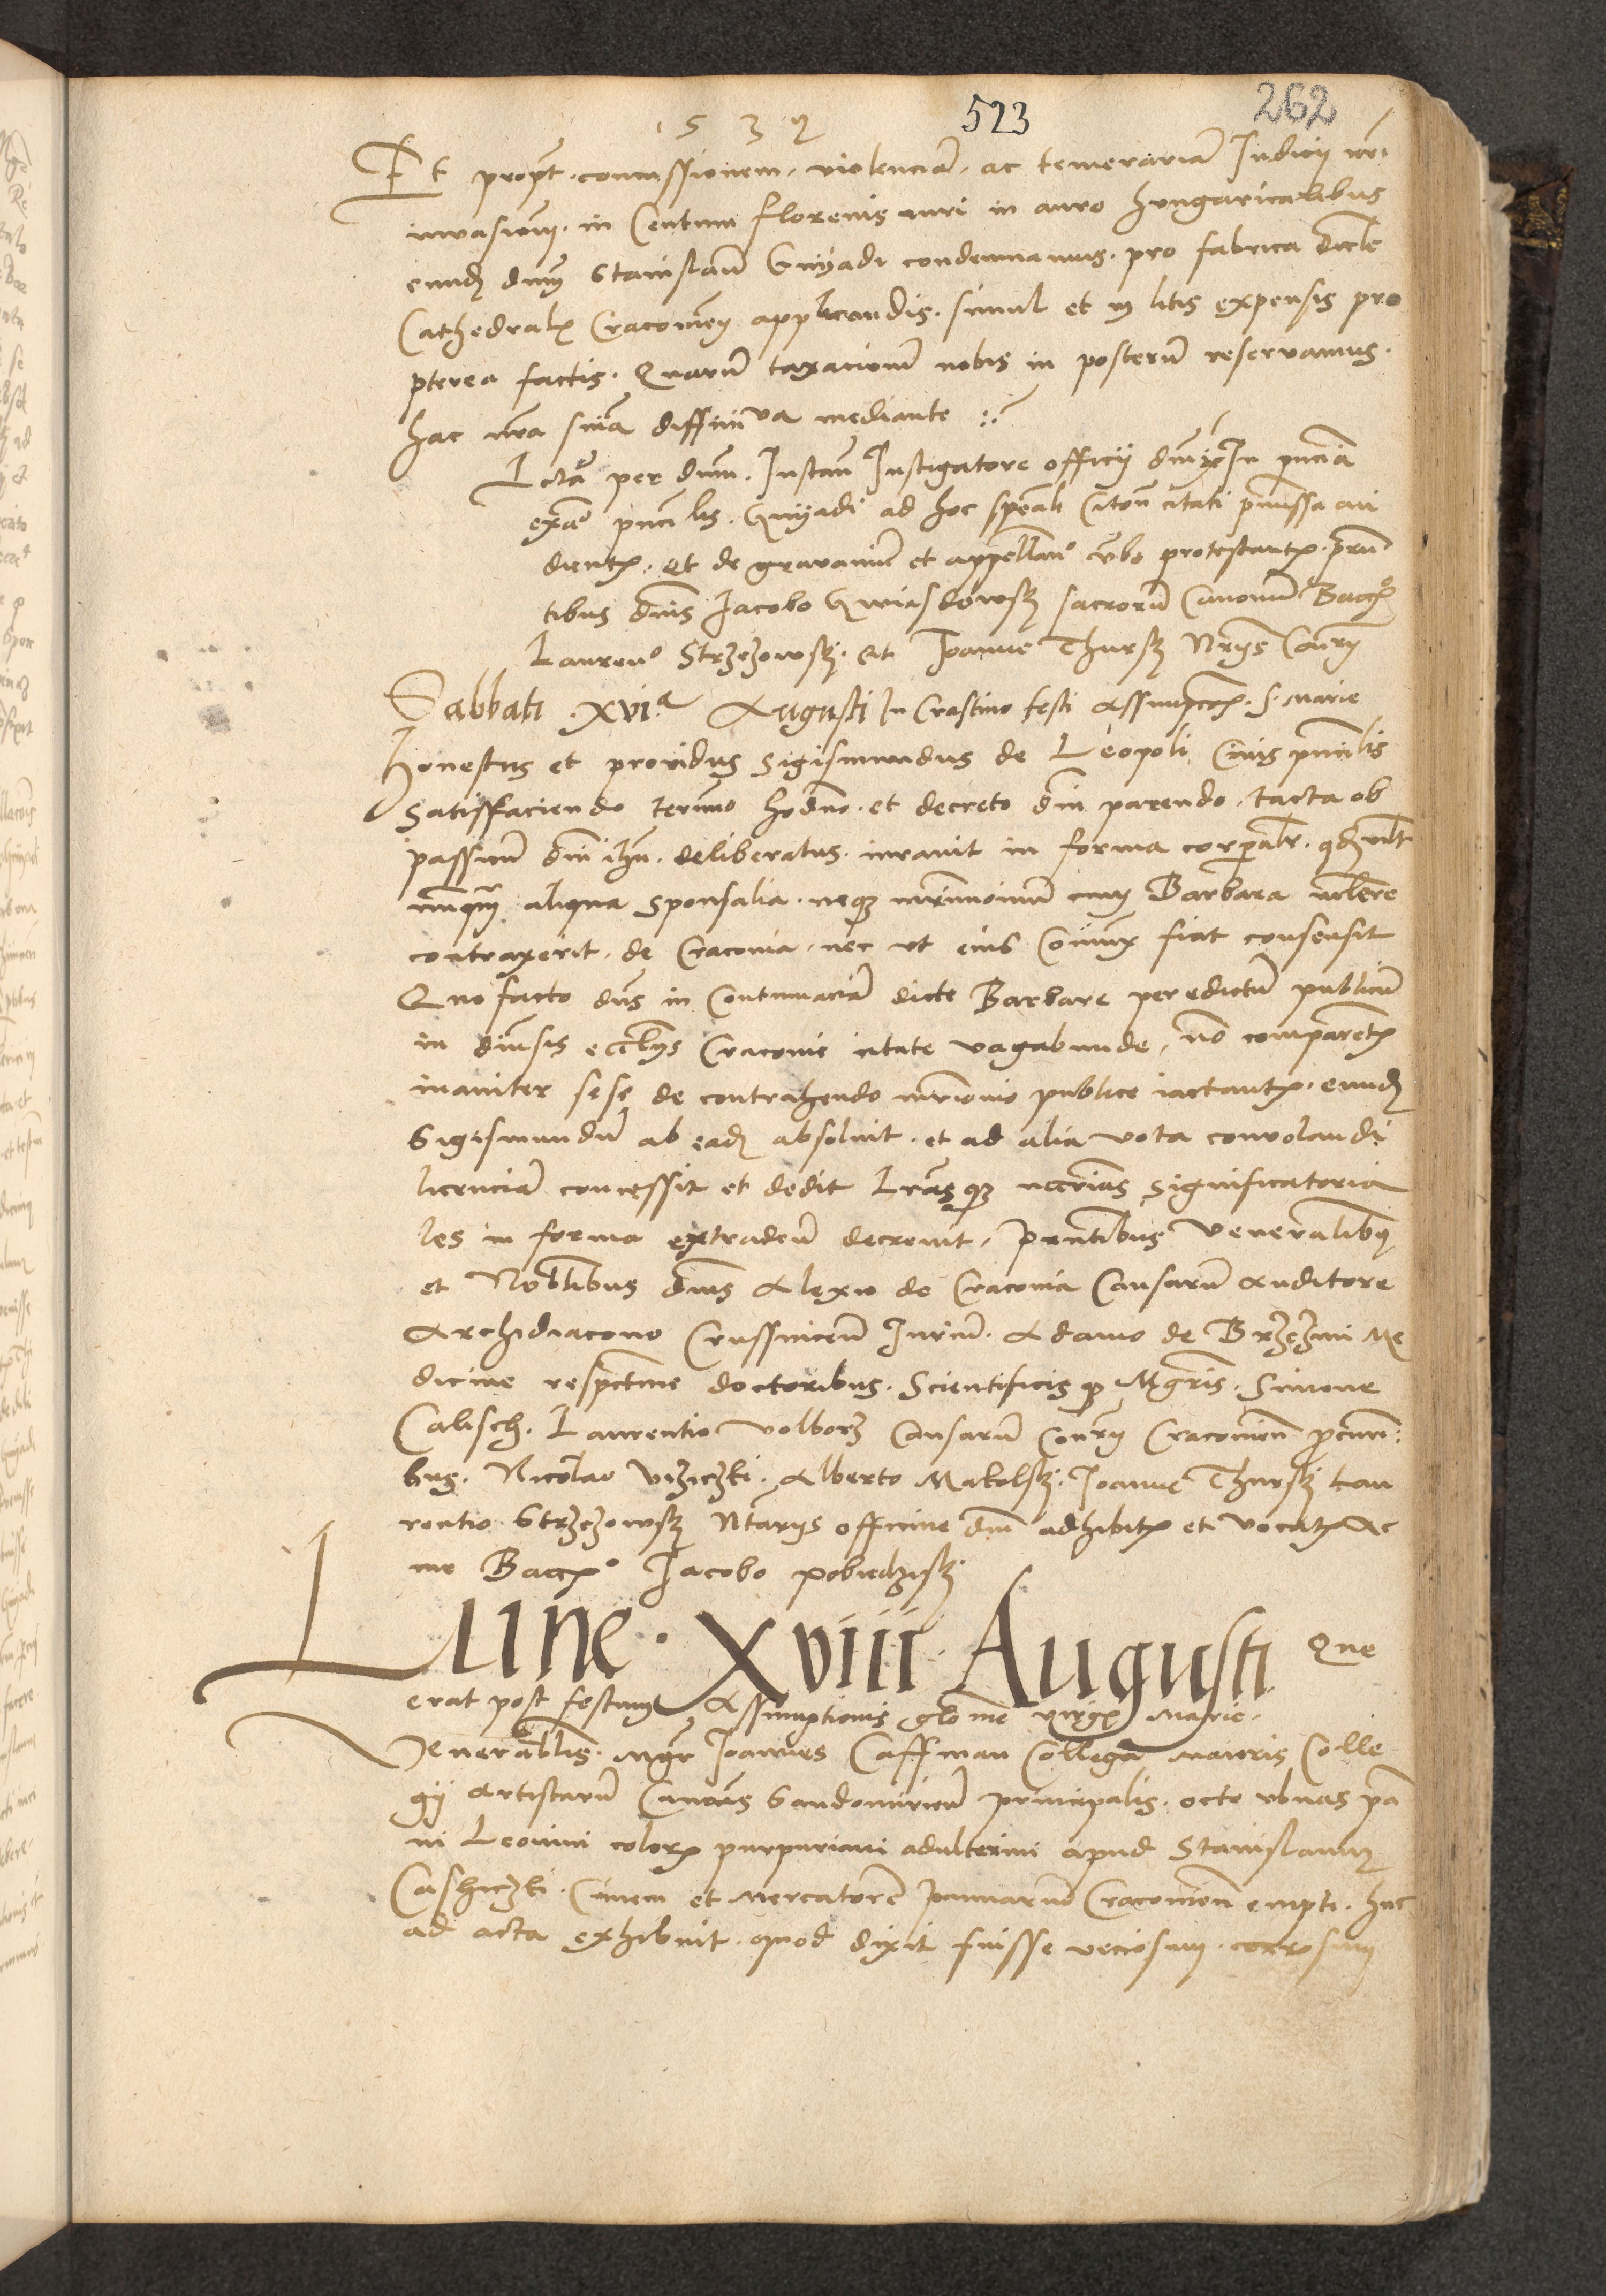 1532 523 262
Et propt. concussionem. violenciã. ac temerariã Iudicij nri
invasionẽ. in Centum florenis auri in auro hungaricalibus
eundẽ dnm̃ Stanislaũ Gnyadi condemnamus. pro fabrica Eccle
Cathedralis Cracovieñ applicandis. simul et in litis expensis pro
pterea factis. Quarũ taxacionẽ nobis in posterũ reservamus.
hac nrã sniã diffinitiva mediante
Lcta per dnm̃. Instan̄ Instigatore officij dni
dientis. et de gravamine et appellan̄do vbo protestantis. prn̄
tibus dnis Iacobo Gwiasdowsky sacrorũ Canonũ Bacc̃o
Laurenº Strzezowsky. et Ioanne Thursky Nrijs Conrij
Sabbati .XVIª Augusti In Crastino festi Assumpc̃ois. S. Marie
Honestus et providus Sigismundus de Leopoli Civis
satisfaciendo termĩo hodño. et decreto dni parendo. tacta ob
passionẽ dni ihũ. deliberatus. iuravit in forma corporalr.
nunquam aliqua sponsalia. neq3 mr̃imoniũ cum Barbara mulere
contraxerit. de Cracovia. nec ut eius Coniunx fiat consensit
Quo facto dñs in Contumaciã dicte Barbare per edictũ publicũ
in divsis ecclijs Cracovie citate vagabunde. nõ comparentis
inaniter sese de contrahendo mr̃imonio publice iactantis. eundẽ
Sigismundũ ab eadẽ absolvit. et ad alia vota convolandi
licenciã concessit et dedit Lrãsq3 nccrias significatoria
les in forma extradenũ decrevit. Prñtibus Venerabilibus
et Nobilibus dñis Alexio de Cracovia Causarũ Auditore
Archidiacono Crusvicen̄ Iuriũ. Adamo de Brzezini Me
dicine respective doctoribus. Scientificisq3 Mgris. Simone
Calisch. Laurentio Volborz Causarũ Conrij Cracovien̄ procurri:
bus. Nicolao Viziczki. Alberto Makolsky. Ioanne Thursky Lau
rentio Strzezowsky Ntarijs officine dni adhibitis et vocatis Ac
me Bacc̃o Iacobo Pobiedzisky
Lune. XVIIII. Augusti Que
erat post festum Assumptionis glorиose virgis Marie.
Venerabilis. Mgr Ioannes Caffman Collega Maioris Colle
gij Artistarũ Canonicus Sandomirien̄ principalis. octo vlnas pã
ni Leonini coloris purpuriani adulterini apud Stanislaum
Caschiczki. Civem et Mercatorẽ pannarũ Cracovien̄ empti. huc
ad acta exhibuit. quod dixit fuisse veciosum. corrosum